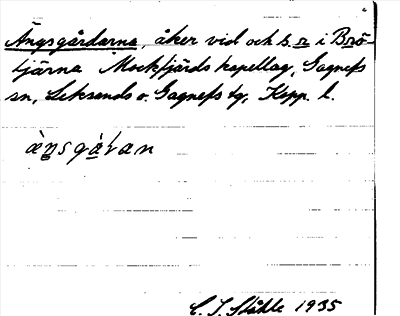 Ängsgårdarna, åker vid och s. n i Brö-
tjärna Mockfjärds kapellag, Gagnefs
sn, Leksands o. Gagnefs tg, Kopp. l.
E. I. Ståhle 1935